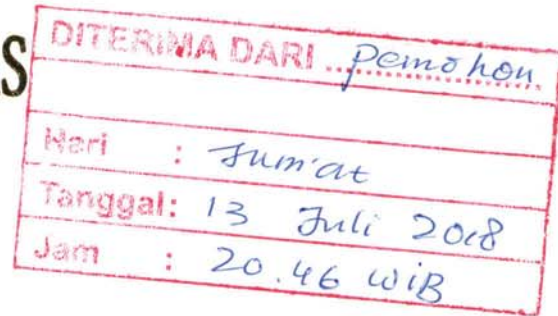 S
DITERIMA DARI ..Pemohon
Hari : Jum'at
Tanggal: 13 Juli 2018
Jam : 20.46 WIB